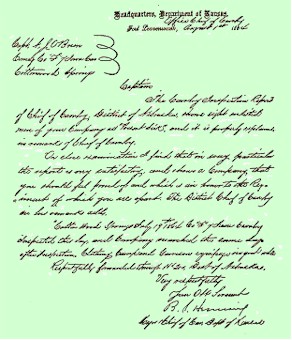 Headquarters, Department of Kansas,
Office Chief of Cavalry
Fort Leavenworth, August 1st 1864
Capt. N. J. O'Brien
Comdg Co. F 7th Iowa Cav
Cottonwood Springs
Captain
The Cavalry Inspection Report
of Chief of Cavalry, District of Nebraska, shows eight enlisted
men of your Company as and it is properly explained
in remarks of Chief of Cavalry.
On close examination I find that in every particular
the report is very satisfactory, and shows a Company, that
you should feel proud of and which is an honor to the Reg-
iment of which you are a part. The District Chief of Cavalry
in his remarks adds.
Cotton Wood Springs July 19th 1864 Co. F 7th Iowa Cavalry
Inspected this day, and Company marched the same day
after Inspection. Clothing, Camp and Garrison equipage in good order
Respectfully forwarded through Hd Qrs. Dist of Nebraska.
Very respectfully
Your Obt Servant
B. S. Henning
Major & Chief of Cav. Dept of Kansas